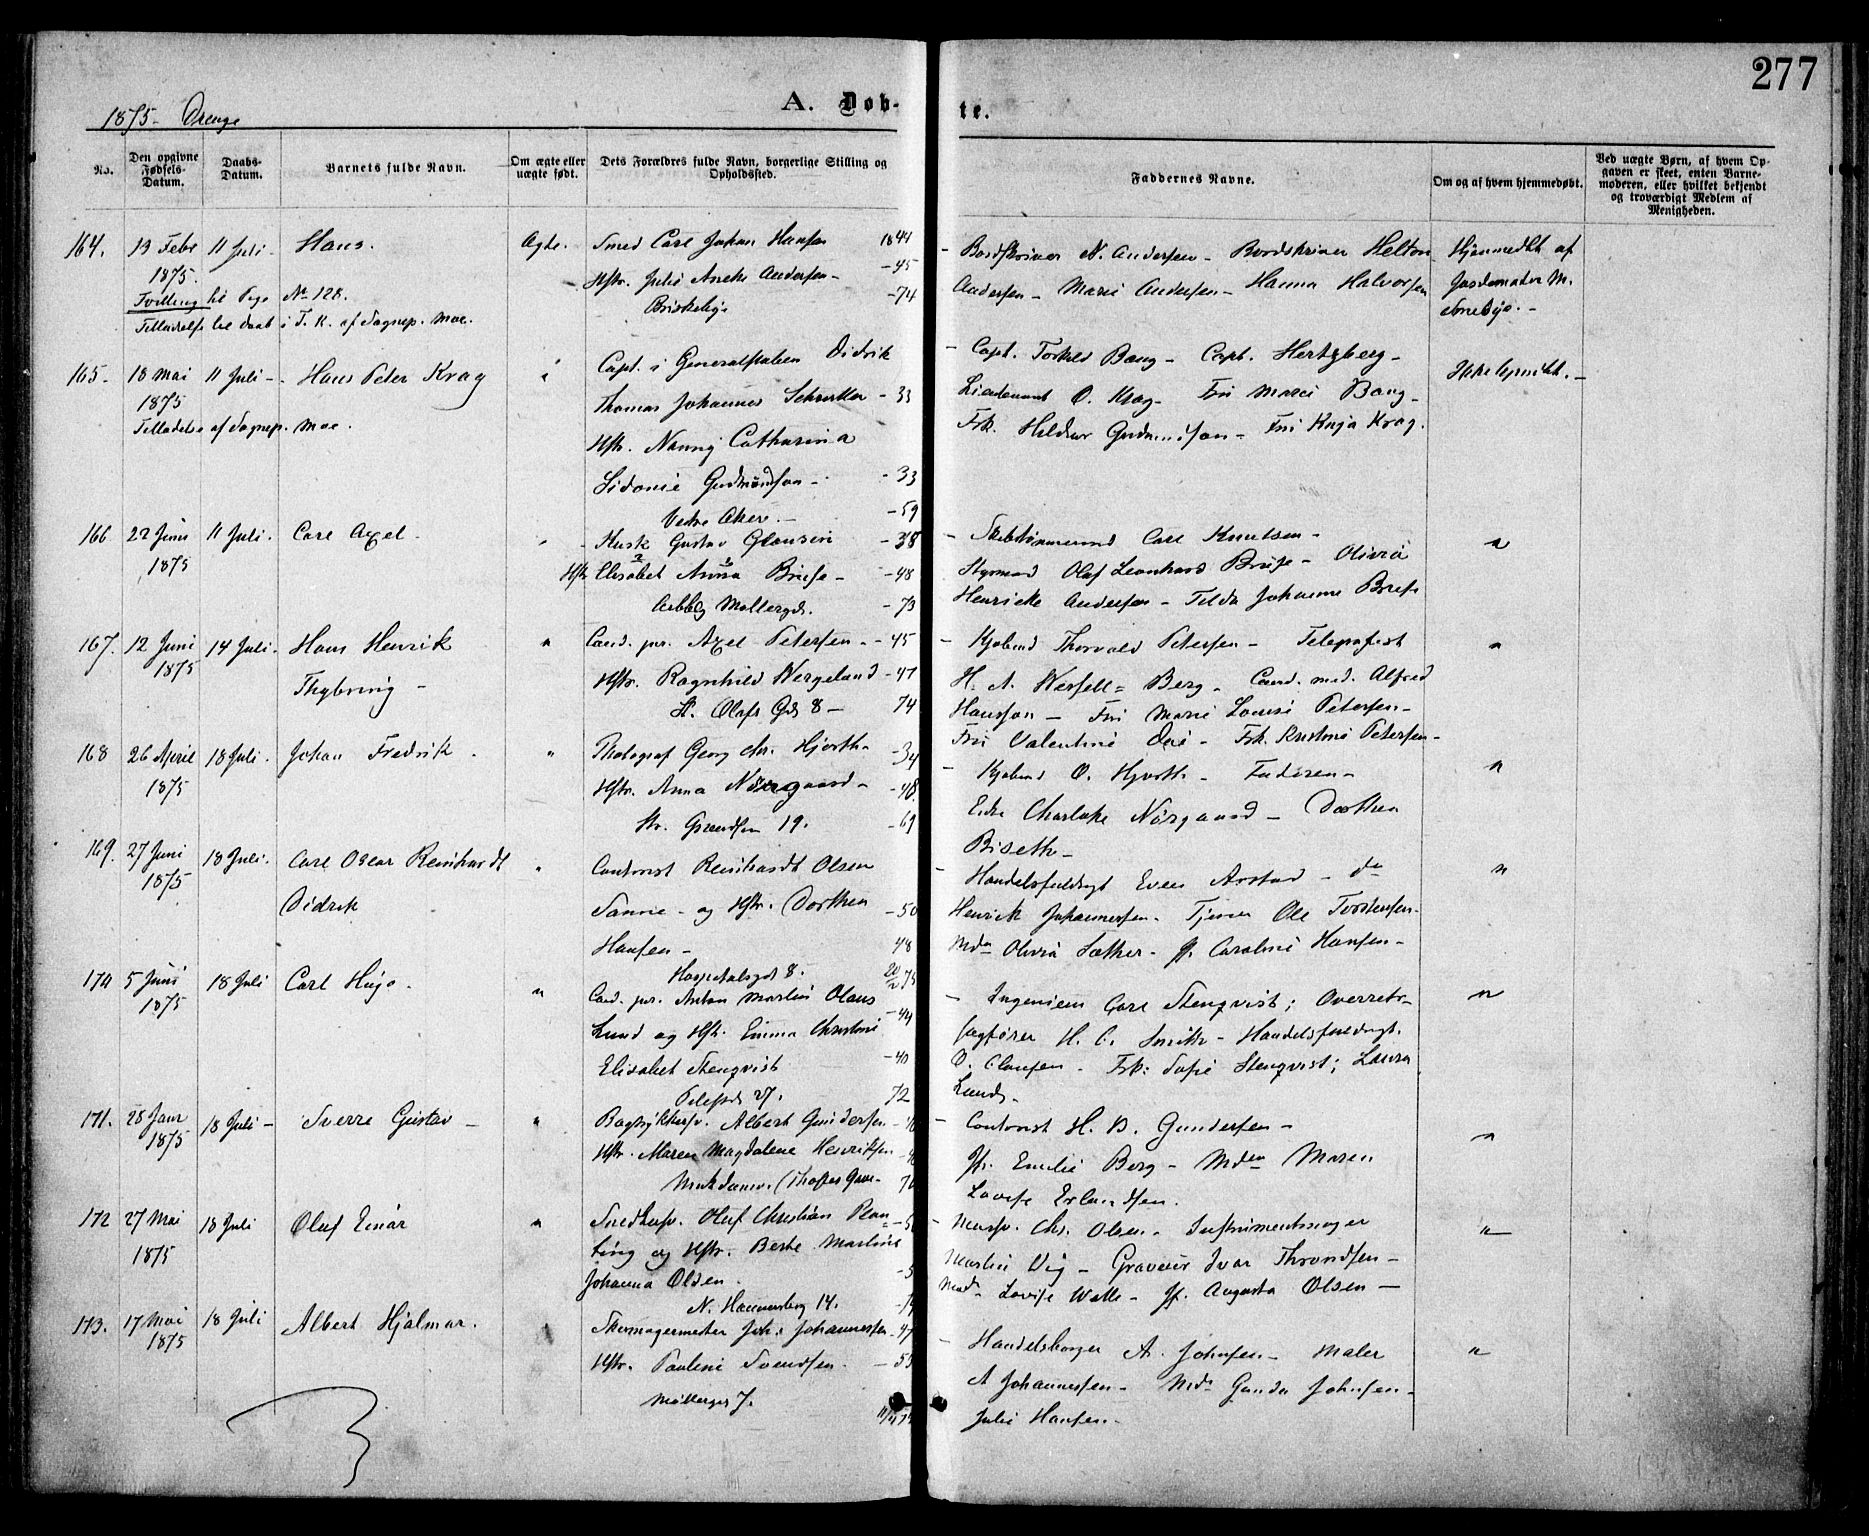 277
1875- Drenge
A. Døb-
te.
No.
Den opgivne Fødsels-Datum.
Daabs-Datum.
Barnets fulde Navn.
Om ægte eller uægte født.
Dets Forældres fulde Navn, borgerlige Stilling og Opholdssted.
Faddernes Navne.
Om og af hvem hjemmedøbt.
Ved uægte Børn, af hvem Op-
gaven er skeet, enten Barne-
moderen, eller hvilket bekjendt
og troværdigt Medlem af
Menigheden.
164. 13 Febr 11 Juli - Hans. Ægte. Smed Carl Johan Hansen 1844
1875. Hstr. Julie Anette Andersen - -45
Tvilling til Pige No 128. -74
Tilladelse til Daab i T. K. af Sognep. Moe.
- Bordskriver N. Andersen - Bordskriver Helton
Andersen - Marie Andersen - Hanna Halvorsen
Hjemmedøbt af
Jordemoder M.
165. 18 Mai 11 Juli - Hans Peter Krag " Capt. i Generalstaben Didrik
1875 Thomas Johannes Schnitler - 33
Tilladelse af Sognep. Moe.
Hstr. Nanny Catharina
Sidonie Gudmundson - - 33
Vestre Aker. - - 59
- Capt. Torkel Bang - Capt. Hertzberg -
Lieutenant O. Krag - Fru Marie Bang -
Frk. Hildur Gudmundson - Fru Kaja Krag.
166 22 Juni 11 Juli. Carl Axel. - Gustav Clausen - 38
1875 Hstr Elisabet Anna Bruse - - 48
Møllergd. - 73
- Skibstømmermand Carl Knutsen -
Styrmand Olaf Leonhard Bruse - Olivia
Henricke Andersen - Tilda Johanne Bruse
"
167. 12 Juni 14 Juli. Hans Henrik " Cand. jur. Axel Petersen - - 45
1875 Thybring - Hstr. Ragnhild Wergeland - 47
St. Olafs Gd 8 - 74
- Kjøbmd Thorvald Petersen - Telegrafist
H. A. Wesfelt = Berg - Cand. med. Alfred
Hansson - Fru Marie Louise Petersen -
Fru Valentine Due - Frk. Kristine Petersen -
"
168 26 April 18 Juli. Johan Fredrik. " Fotograf Georg Chr. Hjorth - 34
1875 Hstr. Anna Nørgaard - - 48.
Str. Grændsen 19. - 69
- Kjøbmd O. Hjorth - Faderen -
Enke Charlotte Nørgaard - Dorthea
Biseth -
"
169. 27 Juni 18 Juli. Carl Oscar Reinhardt " Contorist Reinhardt Olsen
1875 Didrik Sanne - og Hstr. Dorthea - 50
Hansen - 48
Hospitalsgd 8.
- Handelsfuldmgt Even Aastad - do
Henrick Johannessen - Tjener Ole Torstensen -
Mdm Olivia Sæther - Jf. Caroline Hansen -
"
170 5 Juni 18 Juli Carl Hugo. " Cand. jur. Anton Martin Olaus - 44
1875 Lund og Hstr. Emma Christine
Elisabet Stenqvist - 40
Pilestd 27. 72
- Ingeniem Carl Stenqvist; Overrets-
sagfører H. C. Smith - Handelsfuldmgt.
O. Clausen - Frk. Sofie Stenqvist; Laura
Lund -
"
171. 28 Janr 18 Juli - Sverre Gustav - " Bogtrykkersv. Albert Gundersen
1875 Hstr. Maren Magdalene Henriksen
- Contorist H. B. Gundersen -
Jf. Emilie Berg - Mdm Maren
Lovise Erlandsen.
"
172 27 Mai 18 Juli Oluf Einar " Snedkersv. Oluf Christian Plan-
1875 ting og Hstr. Berte Martine
Johanna Olsen.
N. Hammersborg 14.
- Chr. Olsen - Instrumentmager
Martin Vig - Graveur Ivar Throndsen -
Mdm Lovise Walle - Jf. Augusta Olsen -
"
173. 17 Mai 18 Juli Albert Hjalmar. Skomagermester Joh: Johannessen - 47
1875 Hstr. Pauline Svendsen - - 55
Møllergd 7.
- Handelsborger A. Johnsen - Maler
A Johannessen - Mdm Gunda Johnsen -
Julie Hansen -
"